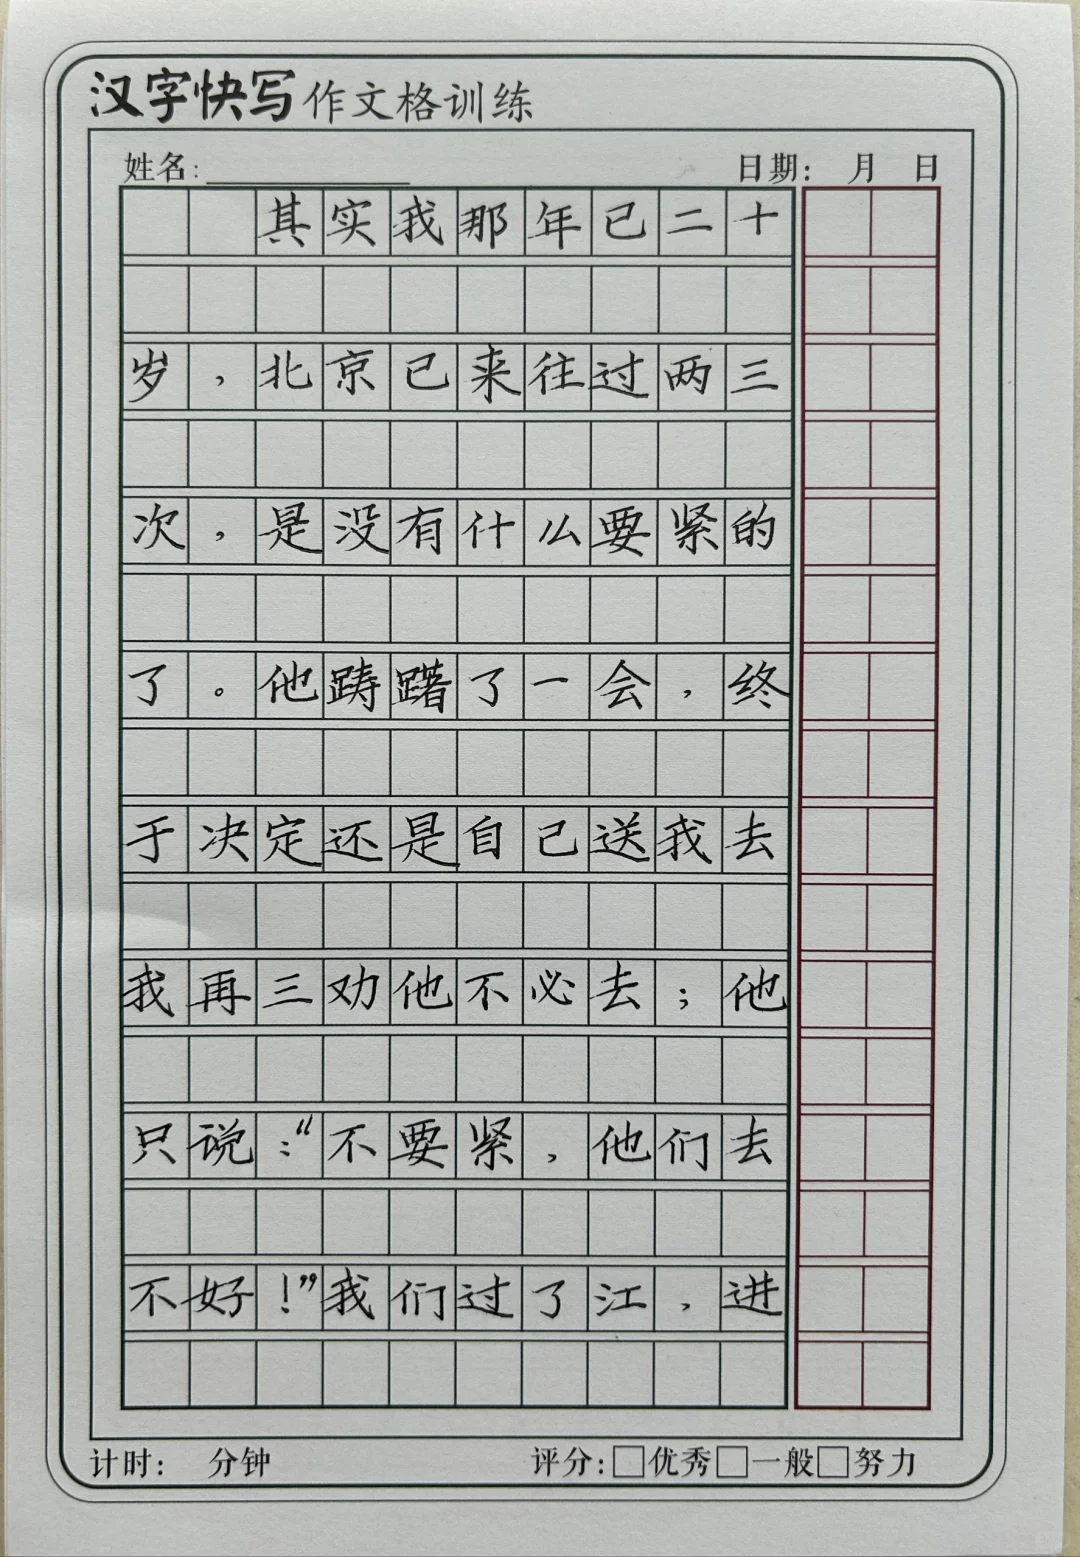 汉字快写作文格训练
姓名: 日期: 月 日
其实我那年已二十
岁，北京已来往过两三
次，是没有什么要紧的
了。他踌躇了一会，终
于决定还是自己送我去
我再三劝他不必去；他
只说：“不要紧，他们去
不好！”我们过了江，进
计时: 分钟 评分:□优秀□一般□努力